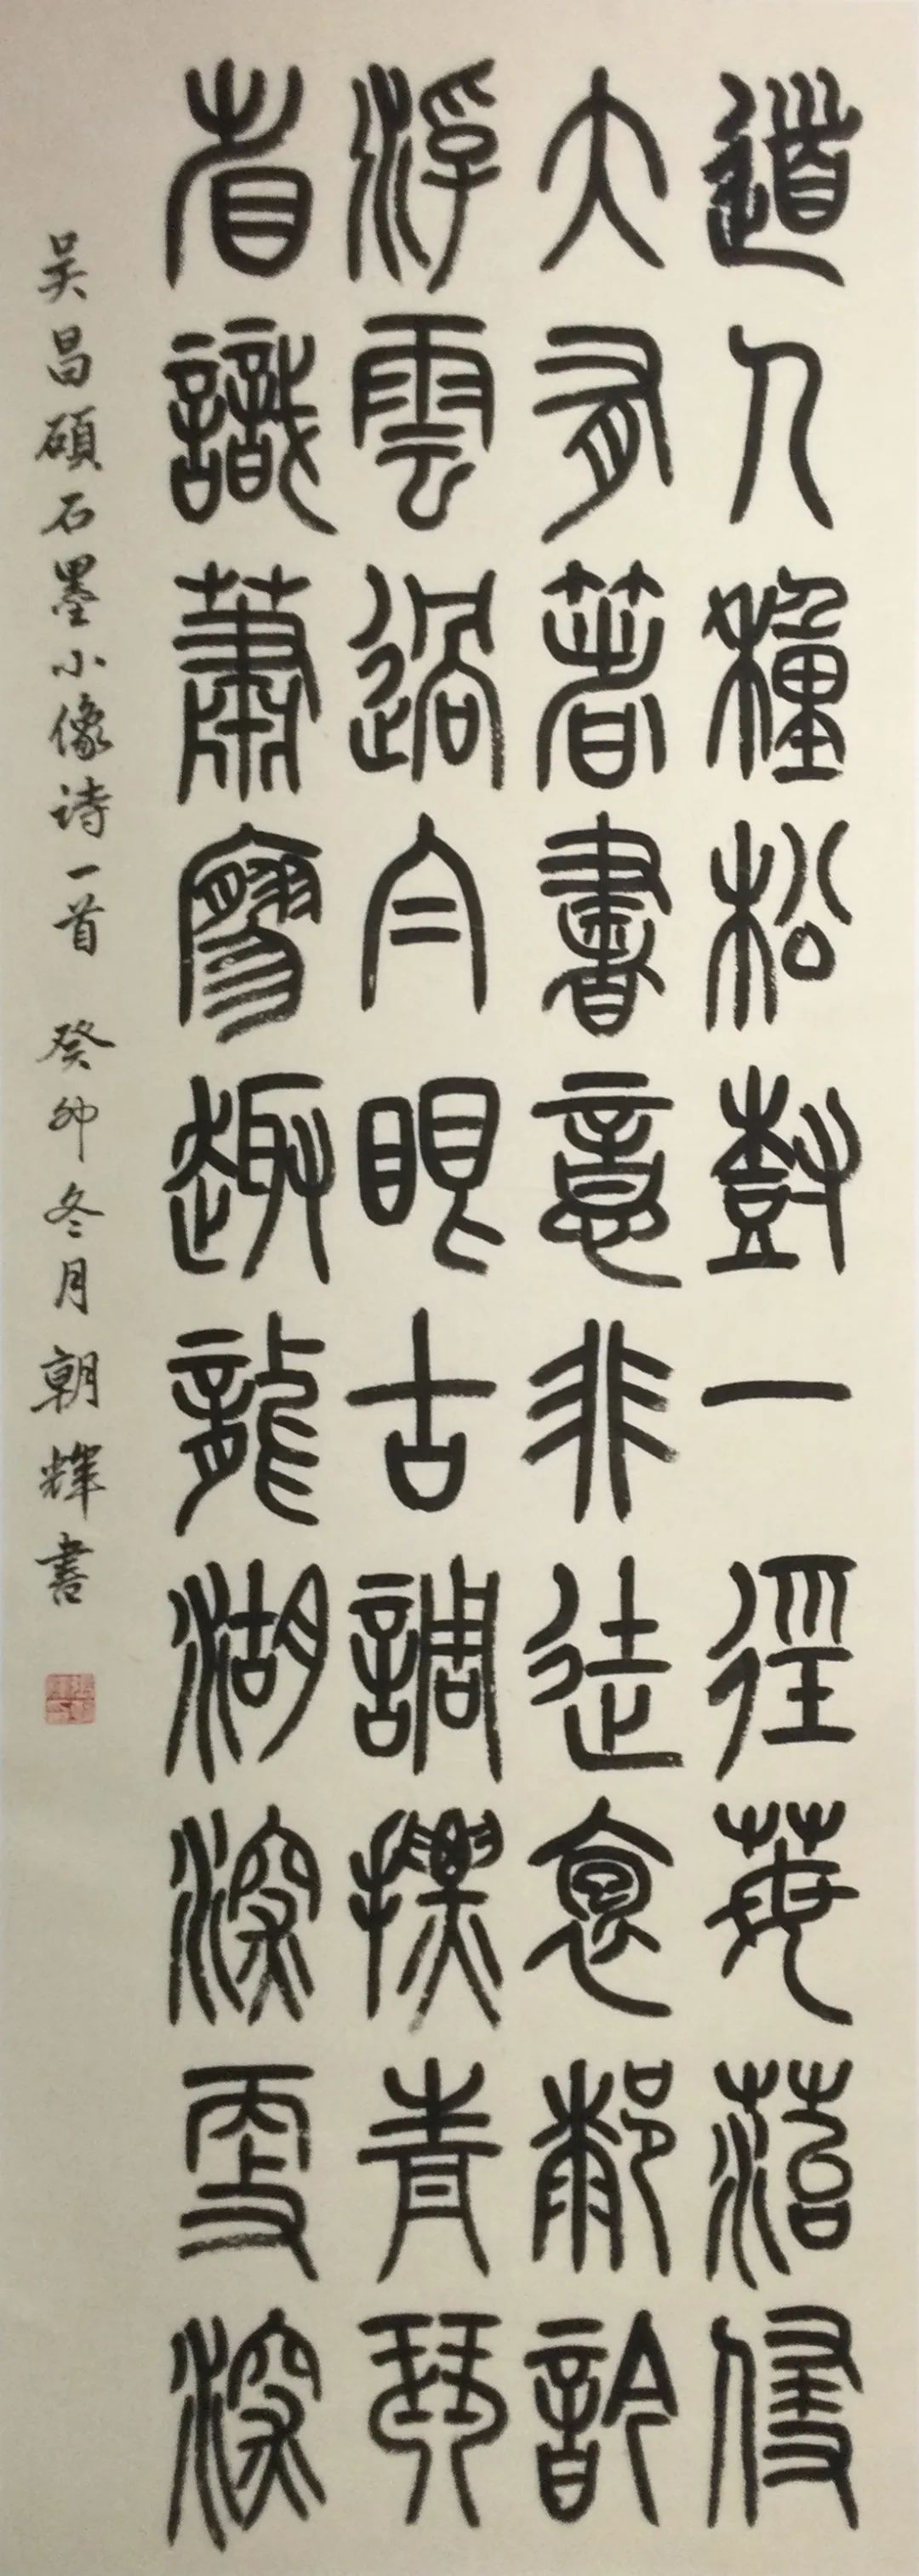 道人種松樹一徑莓菭侵
大有著書意非徒訡
浮雲過今眼古調青琴
省識蕭寥趣龍湖深雪深
吴昌碩石墨小像诗一首 癸卯冬月朝輝書